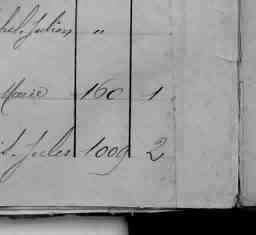 hel. Julien "
Marie 160 1
Jules 1009 2